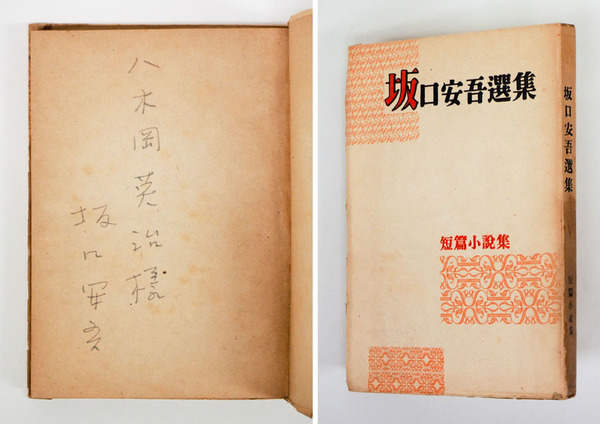 八木岡英治様
坂口安吾
坂口安吾選集
短篇小說集
坂口安吾選集
短篇小說集